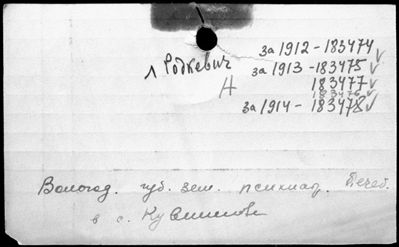 за 1912 - 183474 ✓
л Родкевич за 1913 - 183475 ✓
Н 183477 ✓
183476 ✓
за 1914 - 183478 ✓
Вологод. губ. зем. психиат. лечеб.
в с. Кувшинове